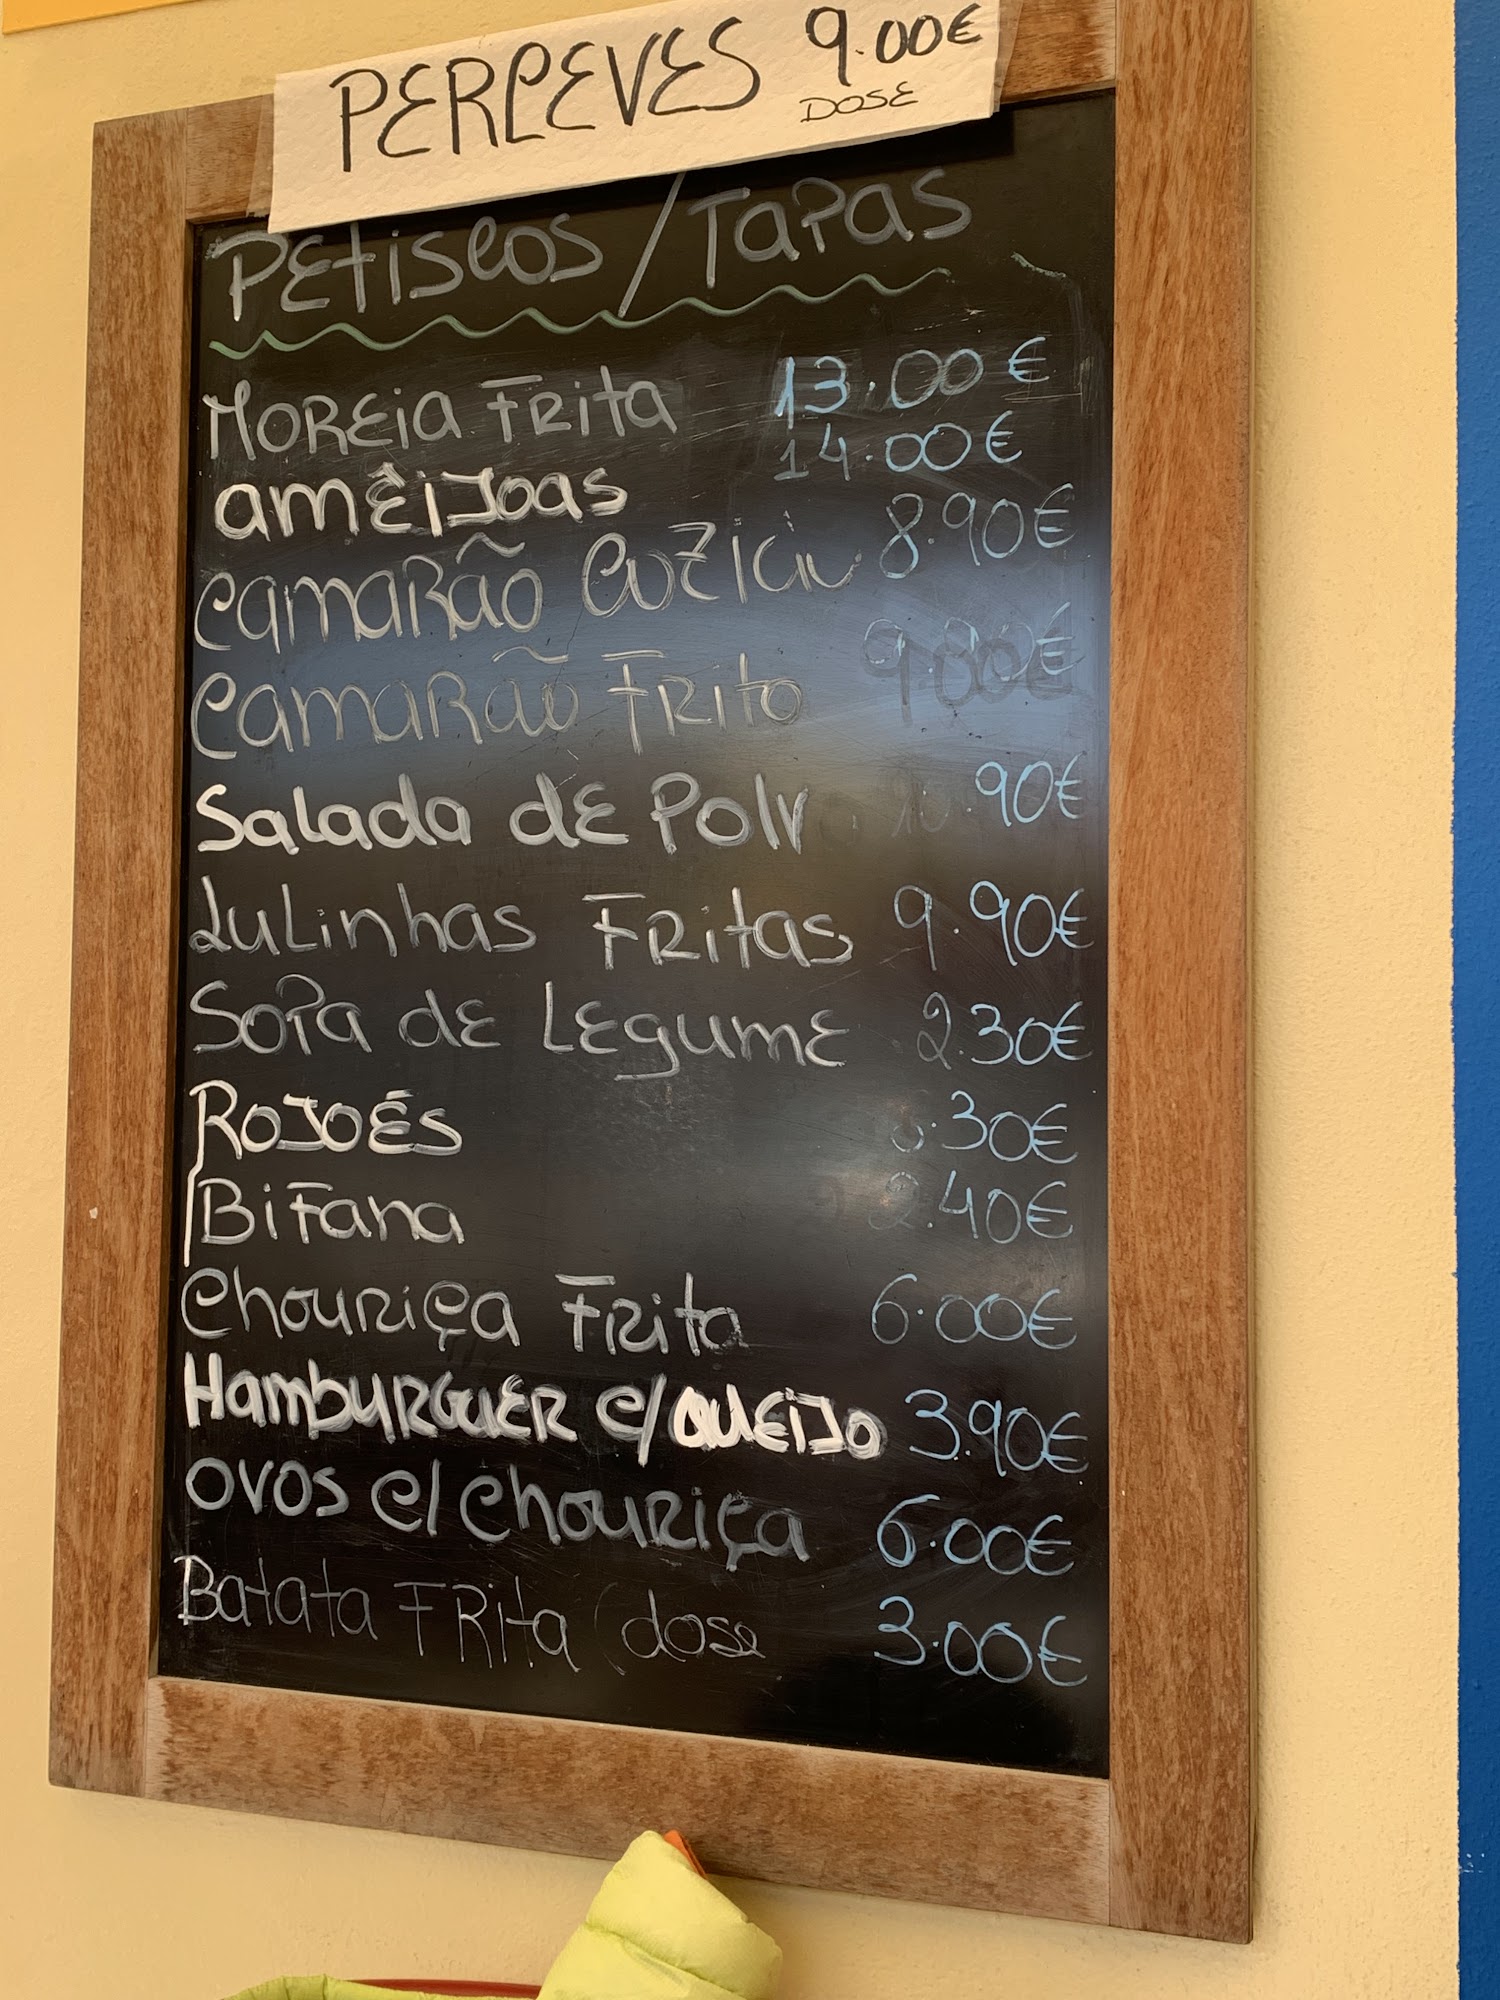 PERCEVES 9.00€
DOSE
Petiscos / Tapas
Moreia Frita 13.00€
amêijoas 14.00€
Camarão Cozido 8.90€
Camarão Frito
Salada de Polv .90€
Julinhas Fritas 9.90€
Sopa de Legume 2.30€
Rojoés .30€
Bifana 2.40€
Chouriça Frita 6.00€
Hamburguer c/ Queijo 3.90€
ovos c/ Chouriça 6.00€
Batata Frita (dose 3.00€